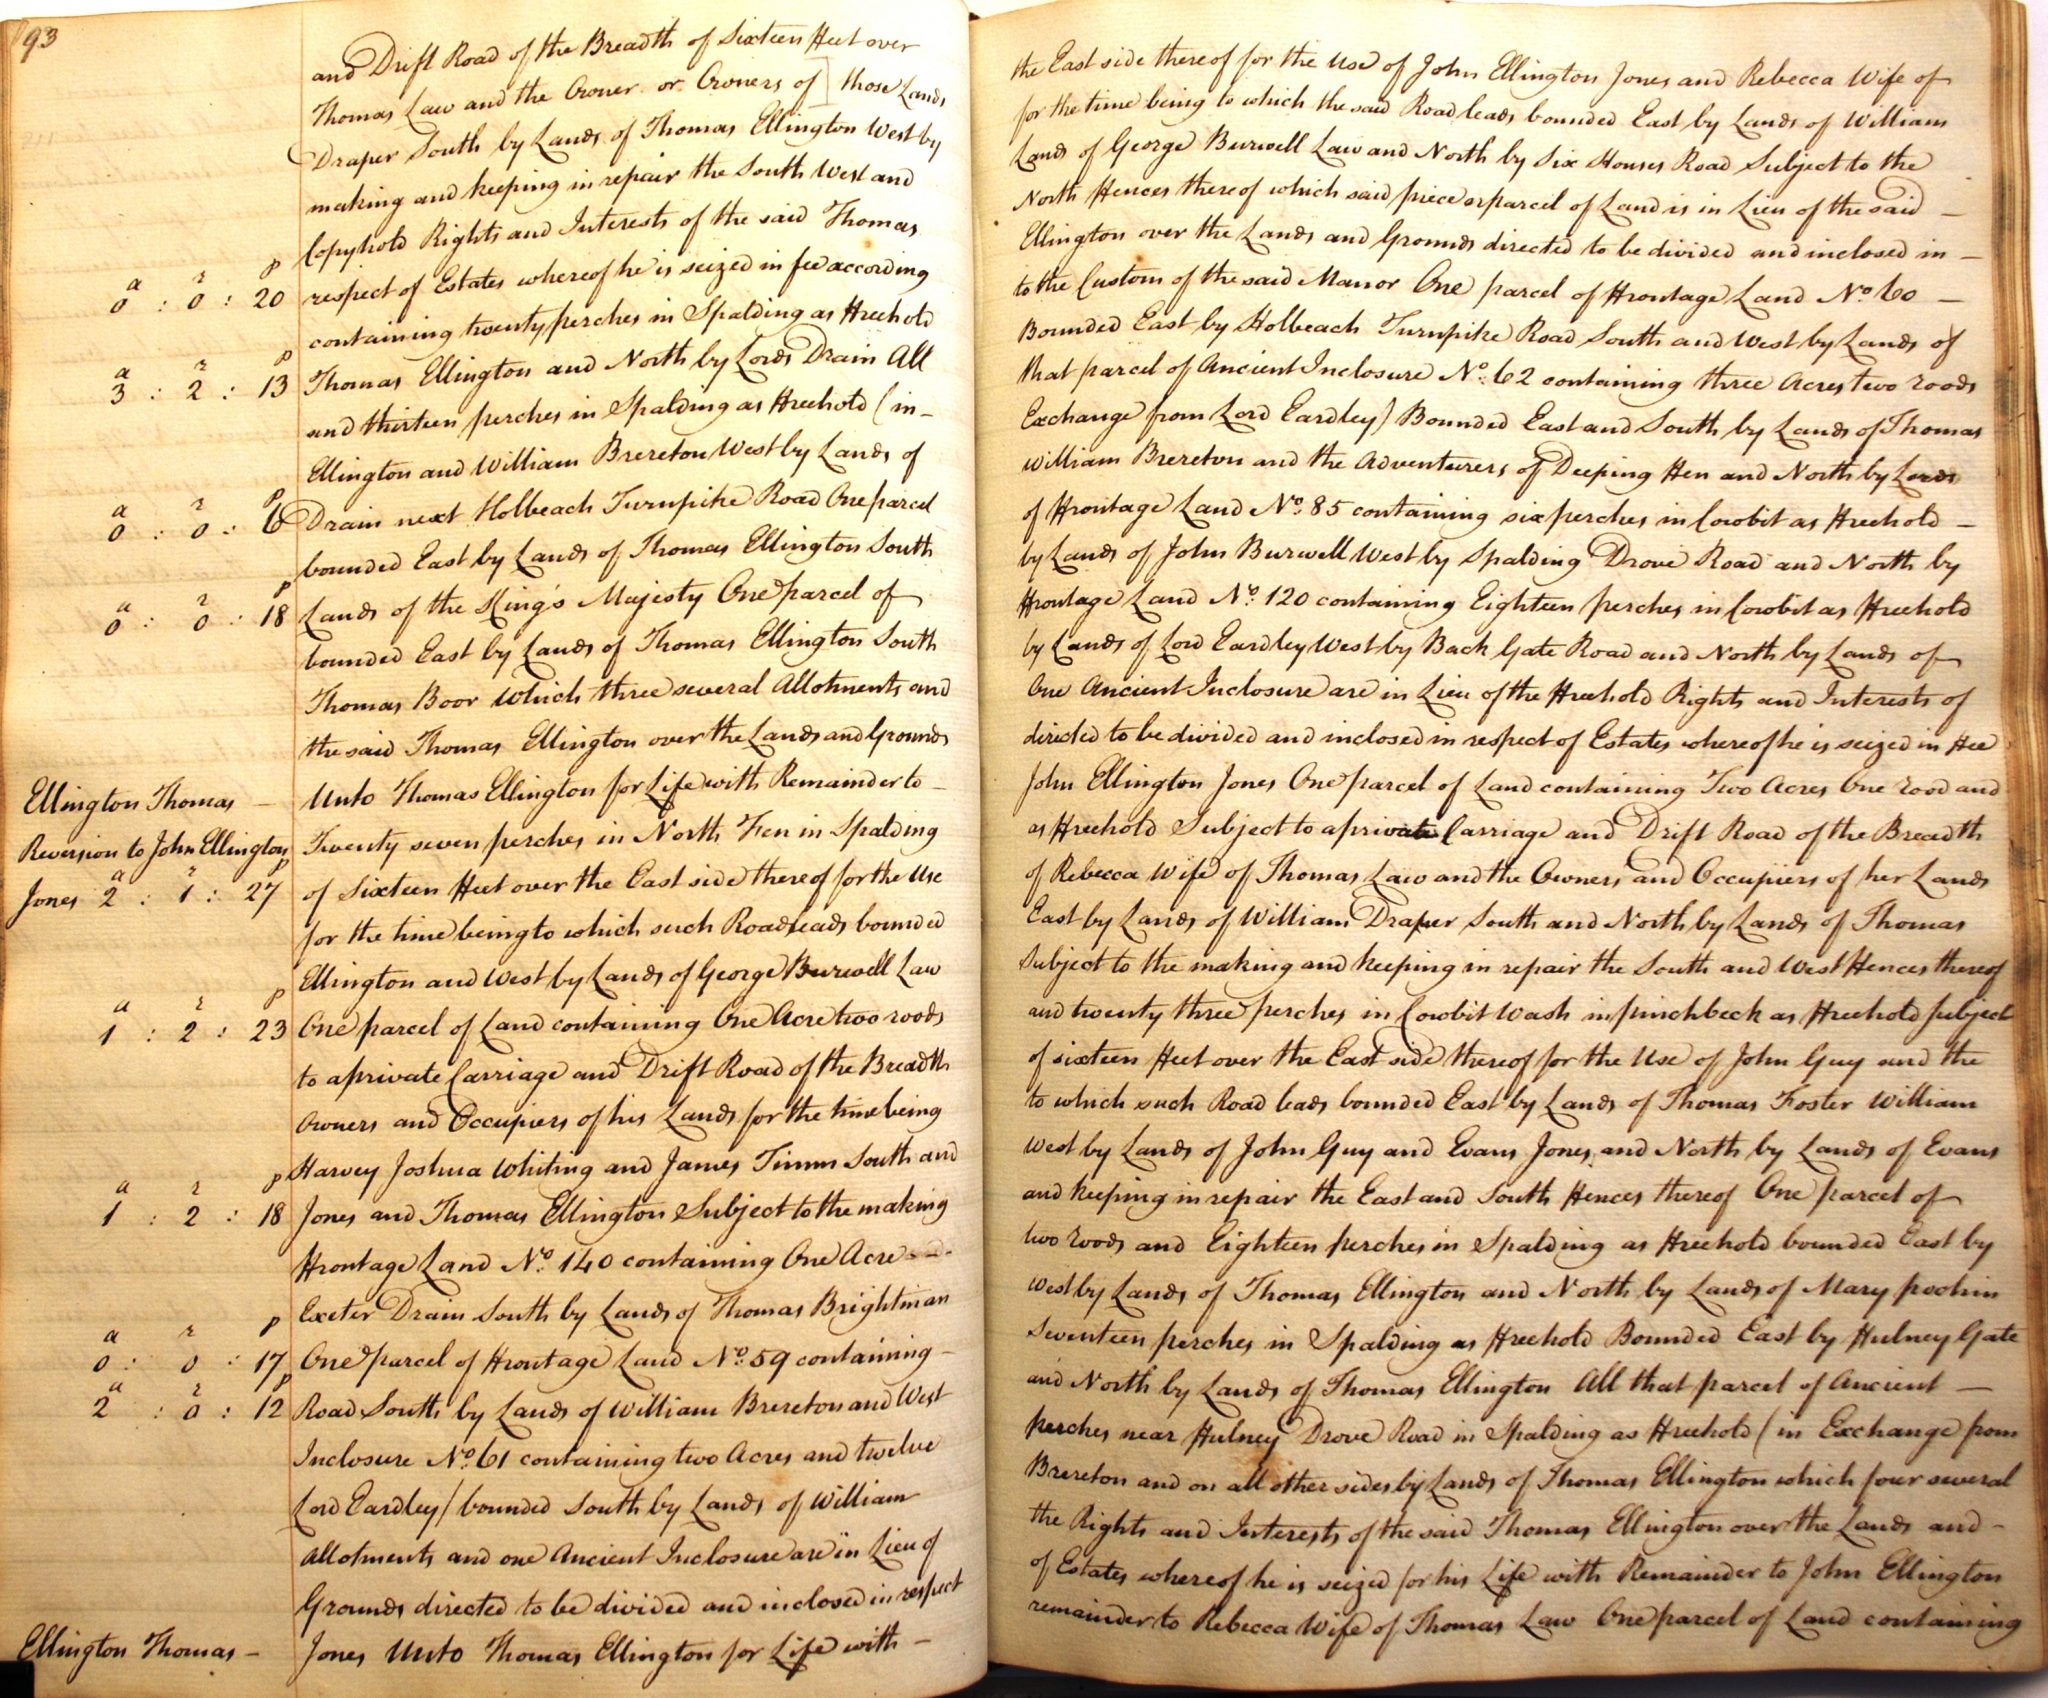 93
and Drift Road of the Breadth of Sixteen Feet over
the East side thereof for the Use of John Ellington Jones and Rebecca Wife of
Thomas Law and the Owner or Owners of those Lands
for the time being to which the said Road leads bounded East by Lands of William
Draper South by Lands of Thomas Ellington West by
Lands of George Burwell Law and North by Six Houses Road Subject to the
making and keeping in repair the South West and
North Fences thereof which said piece or parcel of Land is in Lieu of the said
Copyhold Rights and Interests of the said Thomas
Ellington over the Lands and Grounds directed to be divided and inclosed in
a r p
0 : 0 : 20
respect of Estates whereof he is seized in fee according
to the Custom of the said Manor One parcel of Frontage Land No. 60
containing twenty perches in Spalding as Freehold
Bounded East by Holbeach Turnpike Road South and West by Lands of
a r p
3 : 2 : 13
Thomas Ellington and North by Lords Drain All
that parcel of Ancient Inclosure No. 62 containing three Acres two roods
and thirteen perches in Spalding as Freehold (in
Exchange from Lord Eardley) Bounded East and South by Lands of Thomas
Ellington and William Brereton West by Lands of
William Brereton and the Adventurers of Deeping Fen and North by Lords
a r p
0 : 0 : 6
Drain next Holbeach Turnpike Road One parcel
of Frontage Land No. 85 containing six perches in Cowbit as Freehold
bounded East by Lands of Thomas Ellington South
by Lands of John Burwell West by Spalding Drove Road and North by
a r p
0 : 0 : 18
Lands of the King's Majesty One parcel of
Frontage Land No. 120 containing Eighteen perches in Cowbit as Freehold
bounded East by Lands of Thomas Ellington South
by Lands of Lord Eardley West by Back Gate Road and North by Lands of
Thomas Boor Which three several Allotments and
One Ancient Inclosure are in Lieu of the Freehold Rights and Interests of
the said Thomas Ellington over the Lands and Grounds
directed to be divided and inclosed in respect of Estates whereof he is seized in Fee
Ellington Thomas
Unto Thomas Ellington for Life with Remainder to
John Ellington Jones One parcel of Land containing Two Acres One rood and
Reversion to John Ellington
Twenty seven perches in North Fen in Spalding
as Freehold Subject to a private Carriage and Drift Road of the Breadth
a r p
Jones 2 : 1 : 27
of Sixteen Feet over the East side thereof for the Use
of Rebecca Wife of Thomas Law and the Owners and Occupiers of her Lands
for the time being to which such Road leads bounded
East by Lands of William Draper South and North by Lands of Thomas
Ellington and West by Lands of George Burwell Law
Subject to the making and keeping in repair the South and West Fences thereof
a r p
1 : 2 : 23
One parcel of Land containing One Acre two roods
and twenty three perches in Cowbit Wash in pinchbeck as Freehold subject
to a private Carriage and Drift Road of the Breadth
of sixteen Feet over the East side thereof for the Use of John Guy and the
Owners and Occupiers of his Lands for the time being
to which such Road leads bounded East by Lands of Thomas Foster William
Harvey Joshua Whiting and James Timm South and
West by Lands of John Guy and Evans Jones and North by Lands of Evans
a r p
1 : 2 : 18
Jones and Thomas Ellington Subject to the making
and keeping in repair the East and South Fences thereof One parcel of
Frontage Land No. 140 containing One Acre
two roods and Eighteen perches in Spalding as Freehold bounded East by
Exeter Drain South by Lands of Thomas Brightman
West by Lands of Thomas Ellington and North by Lands of Mary pochin
a r p
0 : 0 : 17
One parcel of Frontage Land No. 59 containing
Seventeen perches in Spalding as Freehold Bounded East by Hulney Gate
a r p
2 : 0 : 12
Road South by Lands of William Brereton and West
and North by Lands of Thomas Ellington All that parcel of Ancient
Inclosure No. 61 containing two Acres and twelve
perches near Hulney Drove Road in Spalding as Freehold (in Exchange from
Lord Eardley) bounded South by Lands of William
Brereton and on all other sides by Lands of Thomas Ellington which four several
Allotments and one Ancient Inclosure are in Lieu of
the Rights and Interests of the said Thomas Ellington over the Lands and
Grounds directed to be divided and inclosed in respect
of Estates whereof he is seized for his Life with Remainder to John Ellington
Ellington Thomas
Jones Unto Thomas Ellington for Life with
remainder to Rebecca Wife of Thomas Law One parcel of Land containing